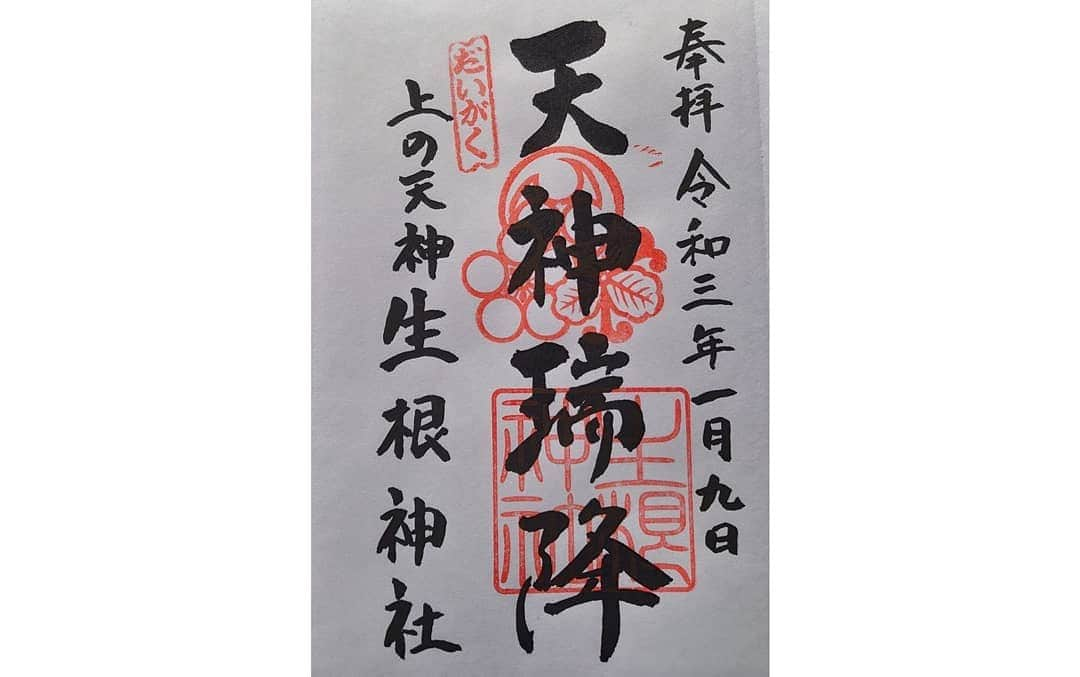 奉拝 令和三年一月九日
天神瑞降
だいがく
上の天神生根神社
生根神社